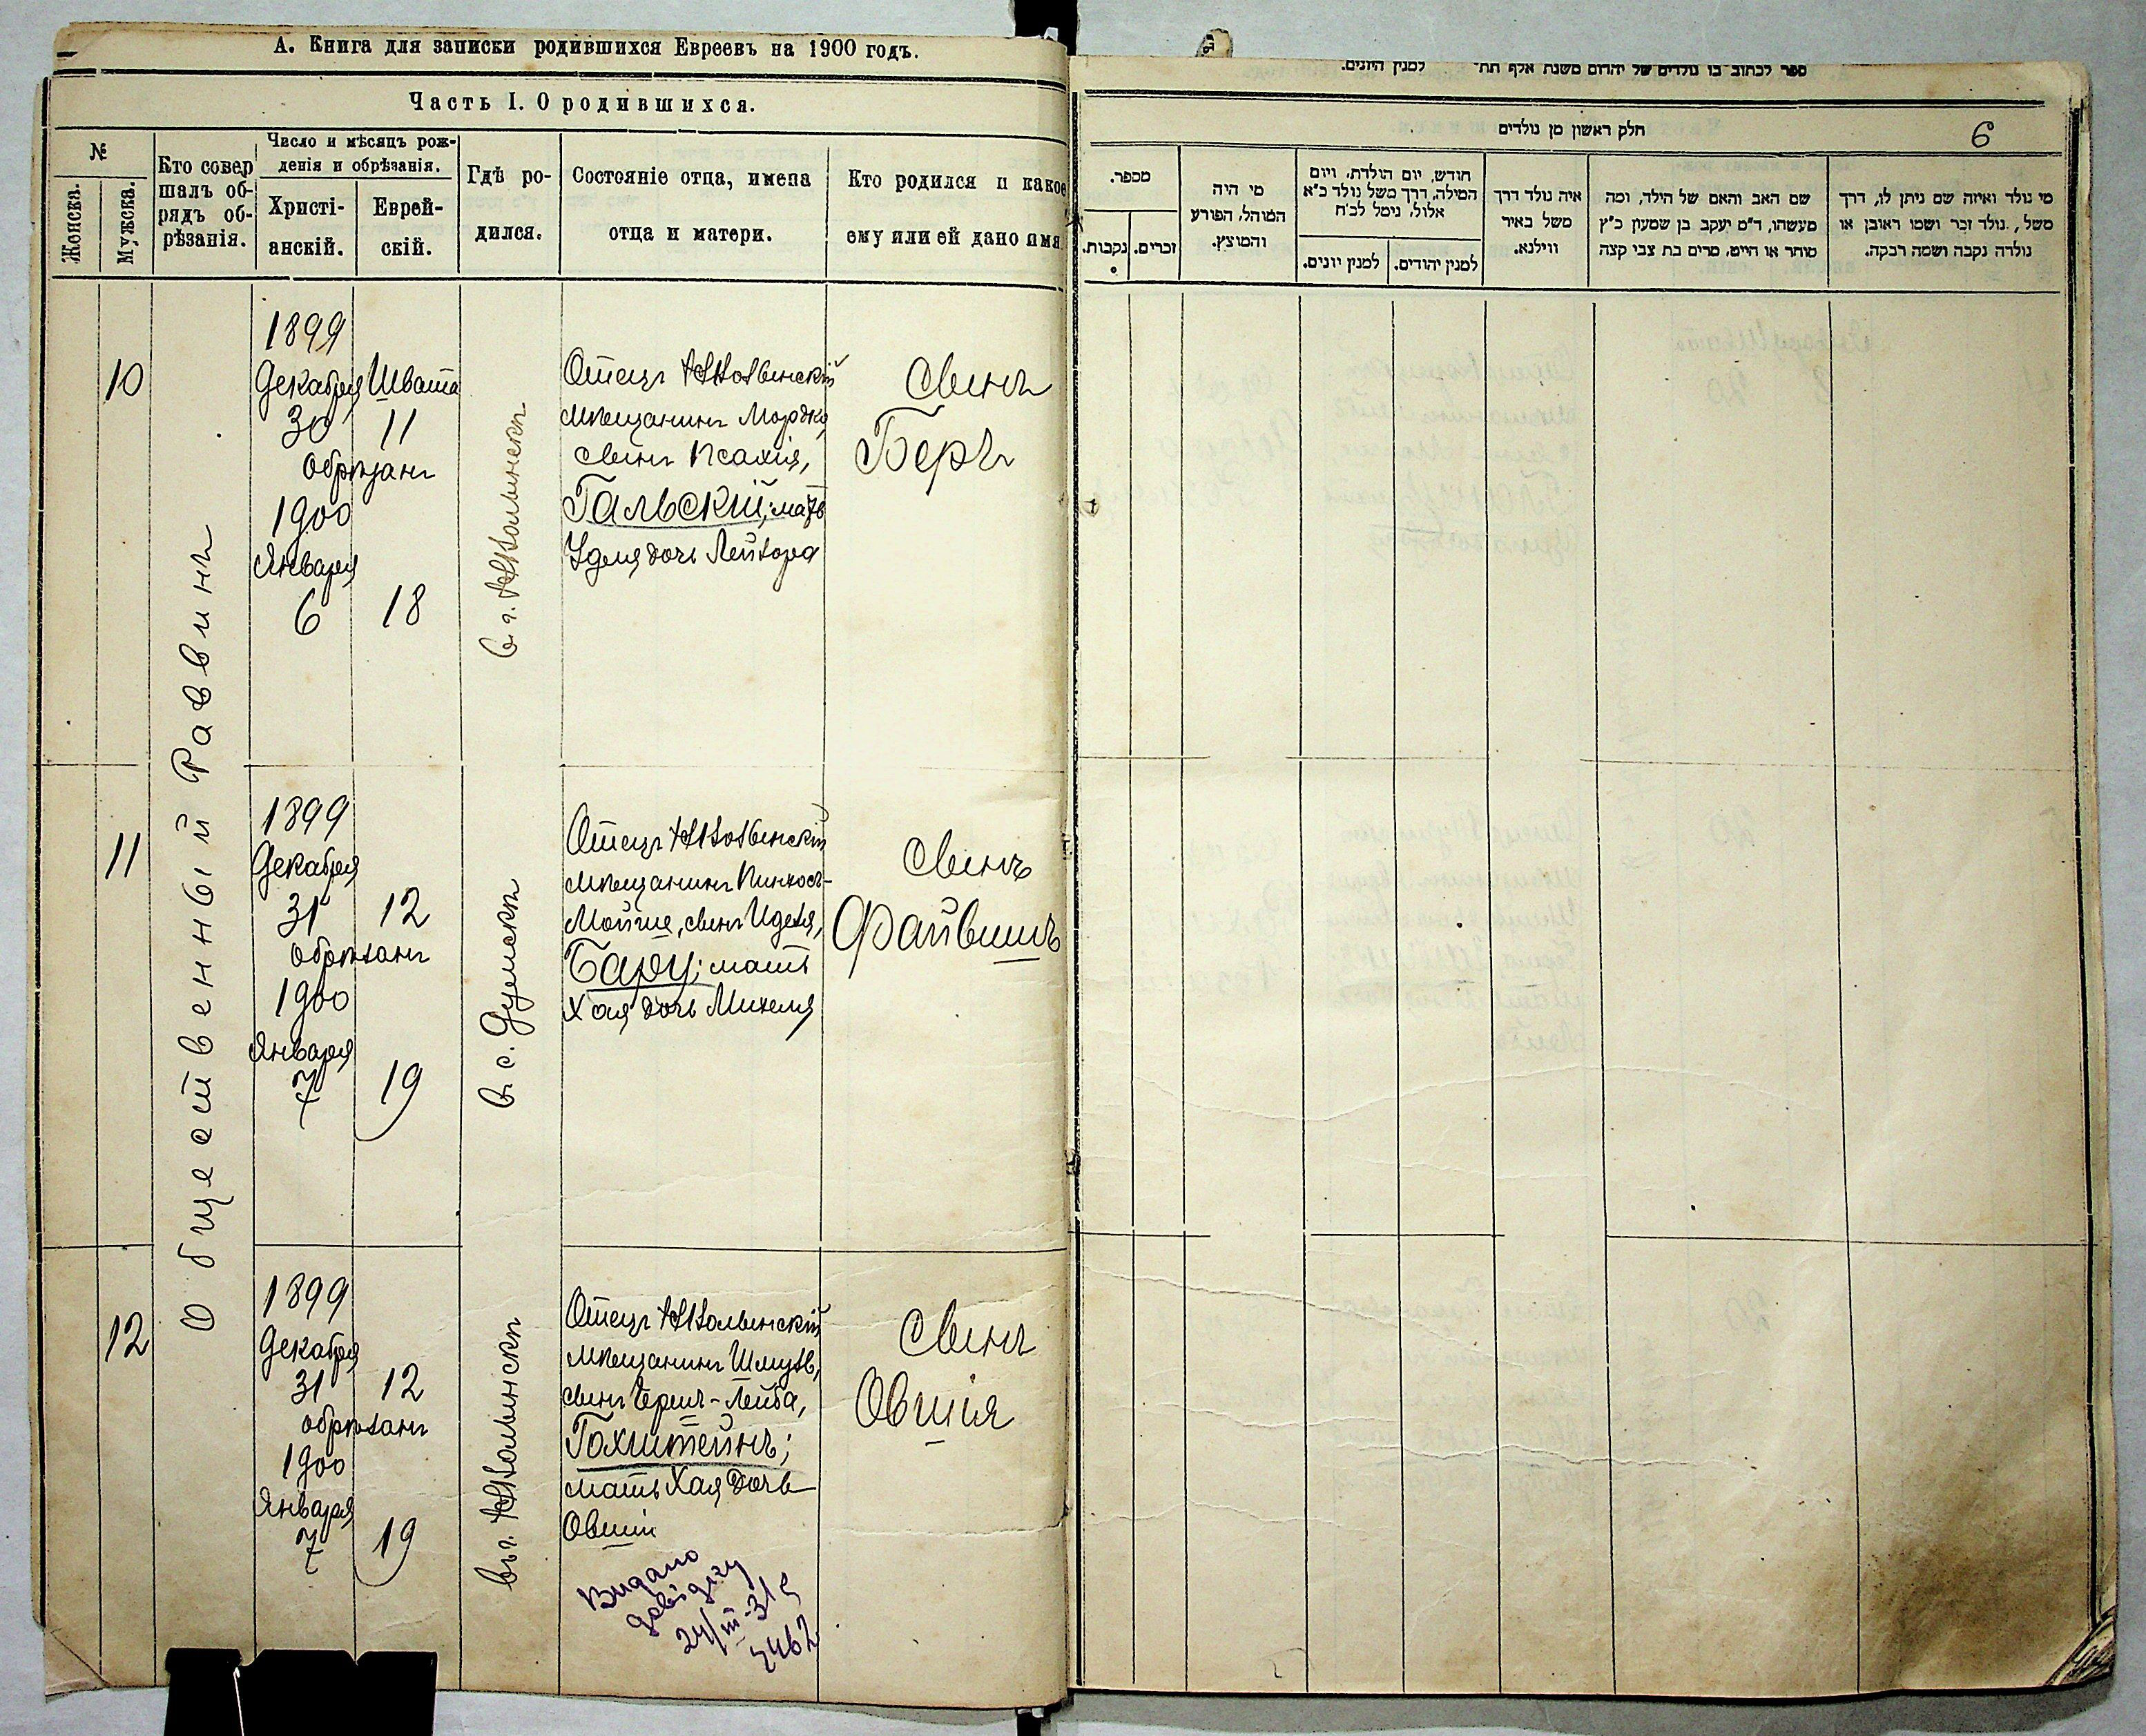 А. Книга для записки родившихся Евреевъ на 1900 годъ.
Часть I. О родившихся.
№
Женска.
Мужска.
Кто совер
шалъ об-
рядъ об-
рѣзанія.
Число и мѣсяцъ рож-
денія и обрѣзанія.
Христі-
анскій.
Еврей-
скій.
Гдѣ ро-
дился.
Состояніе отца, имена
отца и матери.
Кто родился и какое
ему или ей дано имя.
Общественный Раввинъ
10
1899
Декабря Швата
30 11
Обрѣзанъ
1900
Января
6 18
Отецъ
мѣщанинъ Мордко,
сынъ Псахія,
Гальскій; мать
Удля дочь Лейзора
Сынъ
Беръ
11
1899
Декабря
31 12
Обрѣзанъ
1900
Января
7 19
въ с.
Отецъ
мѣщанинъ Пинхосъ-
Мойше, сынъ Иделя,
Бару; мать
Хая дочь Михеля
Сынъ
Файвишъ
12
1899
Декабря
31 12
обрѣзанъ
1900
Января
7 19
въ г.
Отецъ
мѣщанинъ Шмуль,
сынъ Герша-Лейба,
Гохштейнъ;
мать Хая дочь
Овшіи
Сынъ
Овшія
Видано
довідку
24/III-31
ספר לכתוב בו נולדים של יהדום משנת אלף תת׳ למנין היונים.
חלק ראשון מן נולדים
6
מספר.
נקבות.
זכרים.
מי היה
המוהל, הפורע
והמוצץ.
חודש, יום הולדת, ויום
המילה, דרך משל נולד כ״א
אלול, נימל לכ״ח
למנין יונים.
למנין יהודים.
איה נולד דרך
משל באיר
ווילנא.
שם האב והאם של הילד, ומה
מעשהו, ד״מ יעקב בן שמעון כ״ץ
סוחר או חייט, מרים בת צבי קצה
מי נולד ואיזה שם ניתן לו, דרך
משל, נולד זכר ושמו ראובן או
נולדה נקבה ושמה רבקה.